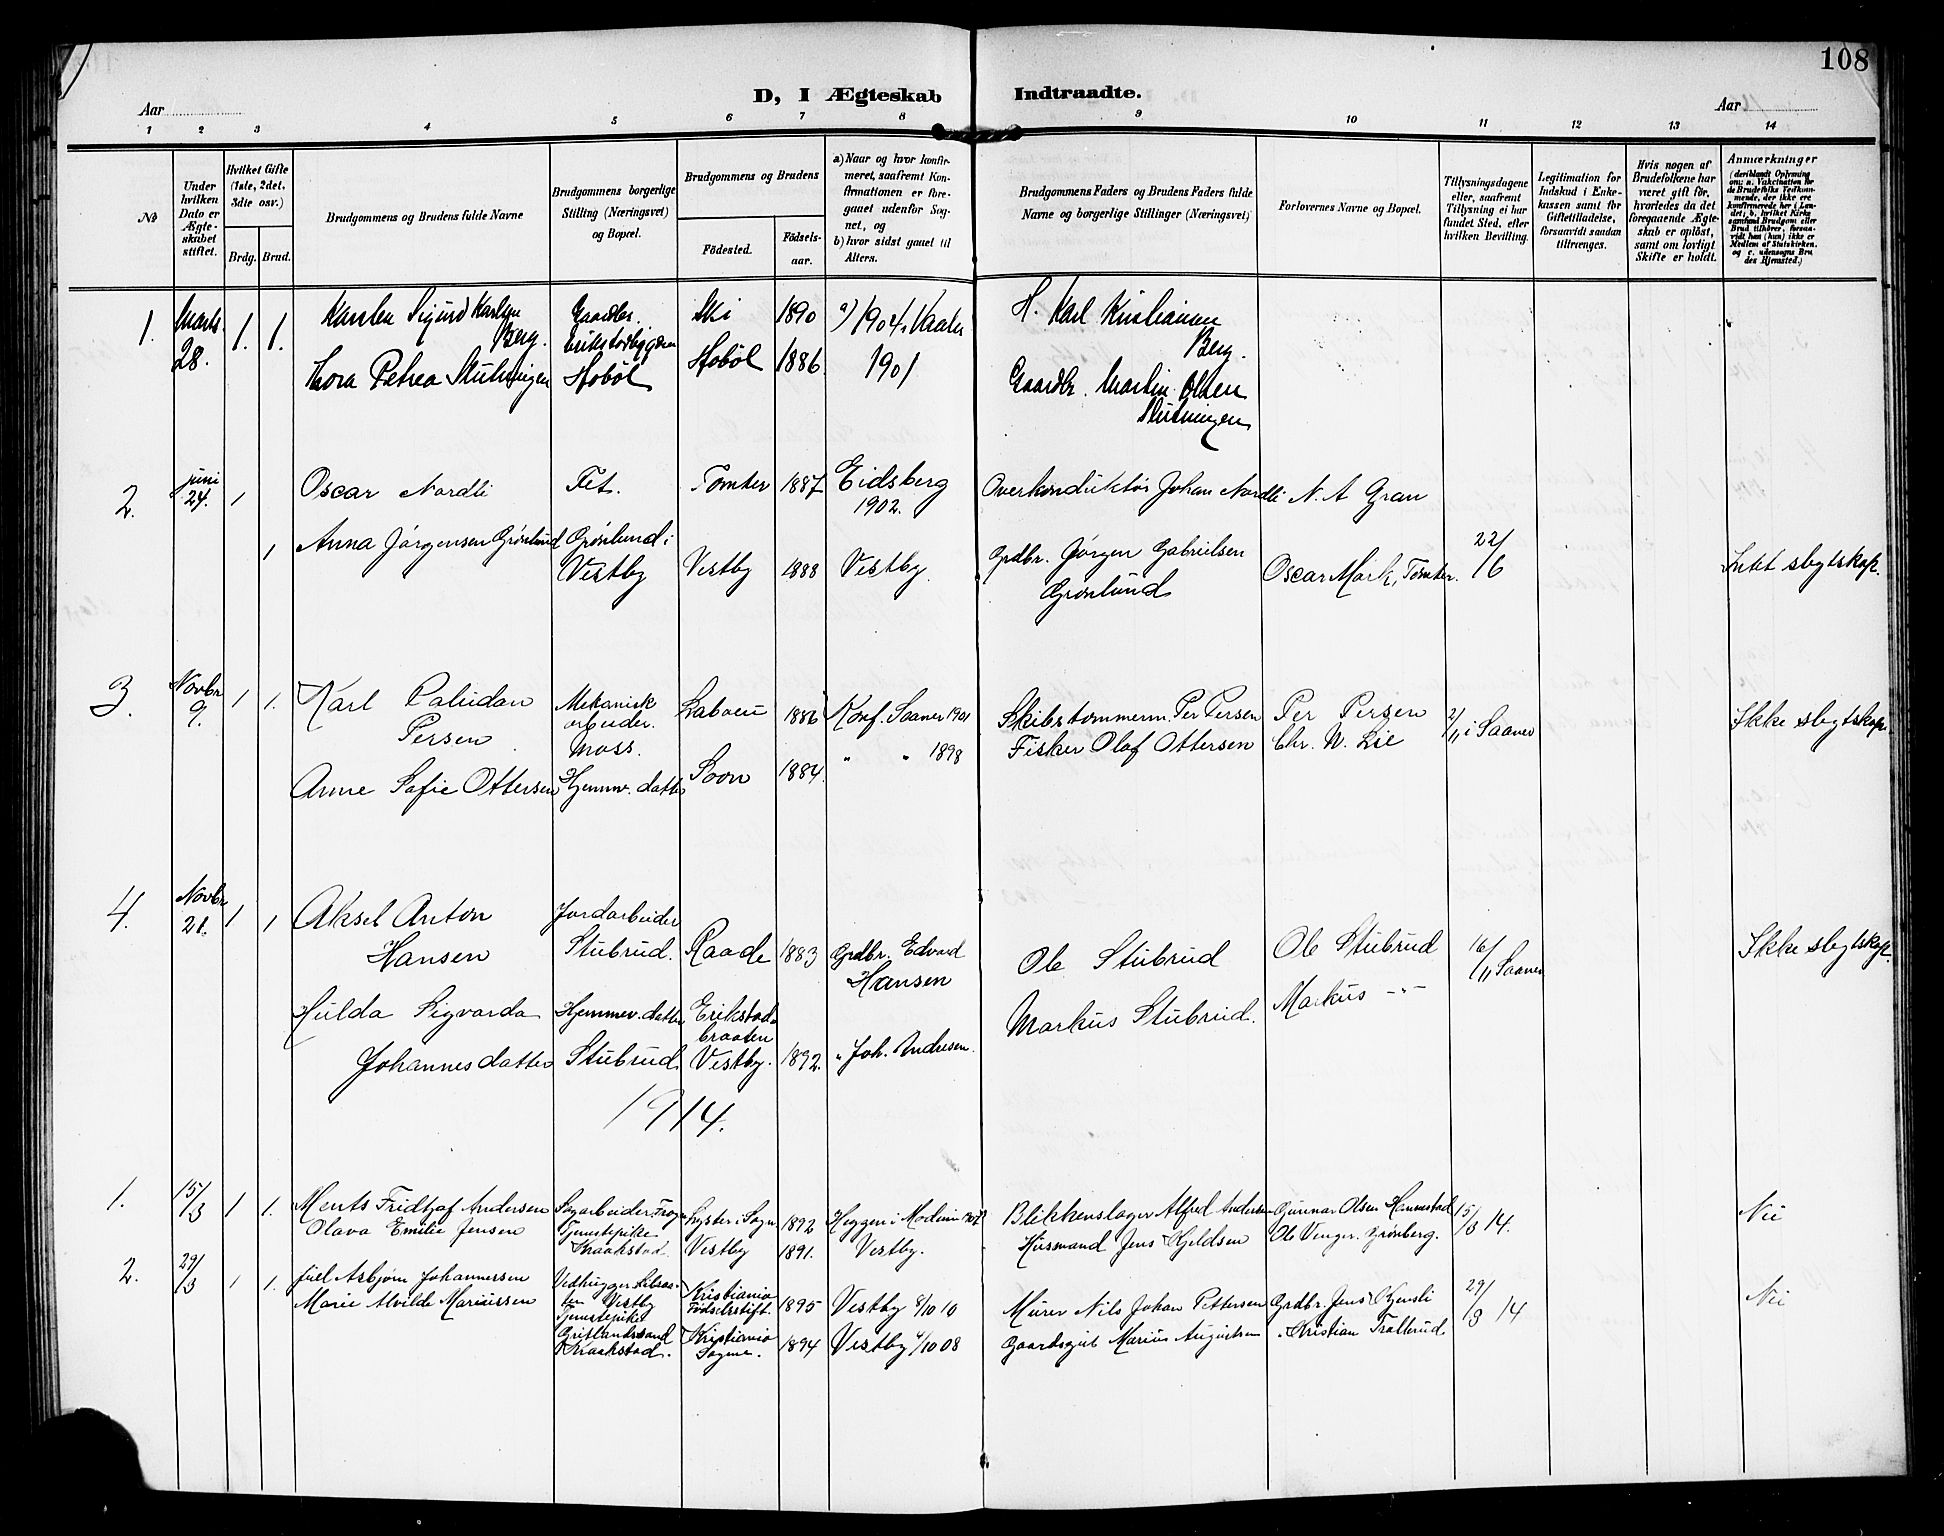 108
D, I Ægteskab Indtraadte.
Aar
Aar
1 2 3 4 5 6 7 8 9 10 11 12 13 14
No
Under hvilken Dato er Ægteskabet stiftet.
Hvilket Gifte (1ste, 2det, 3die osv.)
Brdg. Brud.
Brudgommens og Brudens fulde Navne
Brudgommens borgerlige Stilling (Næringsvei) og Bopæl.
Brudgommens og Brudens
Födested. Födsels-aar.
a) Naar og hvor konfirmeret, saafremt Konfirmationen er foregaaet udenför Sognet, og
b) hvor sidst gaaet til Alters.
Brudgommens Faders og Brudens Faders fulde Navne og borgerlige Stillinger (Næringsvei)
Forlovernes Navne og Bopæl.
Tillysningsdagene eller, saafremt Tillysning ei har fundet Sted, efter hvilken Bevilling.
Legitimation for Indskud i Enkekassen samt för Giftetilladelse, forsaavidt saadan tiltrænges.
Hvis nogen af Brudefolkene har været gift för, hvorledes da det foregaaende Ægteskab er oplöst, samt om lovligt Skifte er holdt.
Anmærkninger
1. Marts 28. 1. 1.
Karsten Sigurd Karlsen Berg. Gaardbr. Ski 1890 a) 1904, Vaaler
H. Karl Kristiansen Berg.
Thora Petrea Slutningen Hobøl Hobøl 1886 1901
Gaardbr. Martin Olsen Slutningen
2. juni 24. 1
Oscar Nordli Fet. Tomter 1887 Eidsberg 1902.
Overkonduktör Johan Nordli N. A Gran
1 Anna Jörgensen Grönlund Grönlund i Vestby Vestby 1888 Vestby.
Grdbr. Jörgen Gabrielsen Grönlund
Oscar Mörk, Tomter. 22/6 Intet slegtskap.
3. Novbr 9. 1 1.
Karl Paludan Persen Mekanisk arbeider. Moss. Laboeü 1886 Konf. Saaner 1901
Skibstömmerm. Per Persen Per Persen 2/11 i Saaner Ikke slegtskap.
Anne Sofie Ottersen Hjemmev. datter Soon 1884. " " 1898
Fisker Olaf Ottersen Chr. N. Lie
4. Novbr 21. 1 1
Aksel Anton Hansen Jordarbeider Stubrud. Raade 1883 Grdbr. Edvard Hansen
Ole Stubrud Ole Stubrud 16/11 Saaner Ikke slegtskap.
Hulda Sigvarda Johannesdatter Hjemmev. datter Stubrud Erikstadbraaten Vestby. 1892. " Joh. Andresen.
Markus Stubrud. Markus -"-
1914.
1. 15/3 1 1.
Ments Fridtjof Andersen Sagarbeider, Lyster i Sogn 1892 Heggen i Modum
Blikkenslager Alfred Andersen Gunnar Olsen Hannestad 15/3 14. Nei
Olava Emilie Jensen Tjenestepike Kraakstad. Vestby 1891. Vestby.
Husmand Jens Kjeldsen Ole Venger. Grönberg.
2. 29/3 1 1.
Juel Asbjörn Johannessen Vedhugger Vestby Kristiania Fødselsstift. 1895 Vestby 9/10 10
Murer Nils Johan Pettersen Grdbr. Jens Kjensli 29/3 14 Nei
Marie Alvilde Mariussen Tjenestepike Kraakstad. Kristiania 1894 Vestby 4/10 08
Gaardsgut Marius Augustsen " Kristian Trollerud